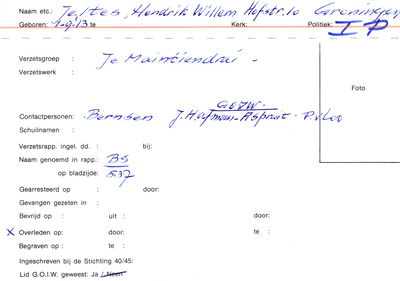 Naam etc.: Jeltes, Hendrik Willem Hofstr. 10 Groningen
Geboren: 1-9-'13 te Kerk: Politiek: IP
Verzetsgroep : Je Maintiendrai -
Verzetswerk :
Foto
GOIW.
Contactpersonen: Bernsen J. Hofman-Aspruit - P. v Loo
Schuilnamen :
Verzetsrapp. ingel. dd. : bij:
Naam genoemd in rapp.: BS
op bladzijde: 537
Gearresteerd op : door:
Gevangen gezeten in :
Bevrijd op : uit : door:
X Overleden op: door: te :
Begraven op : te :
Ingeschreven bij de Stichting 40/45:
Lid G.O.I.W. geweest: Ja / Neen